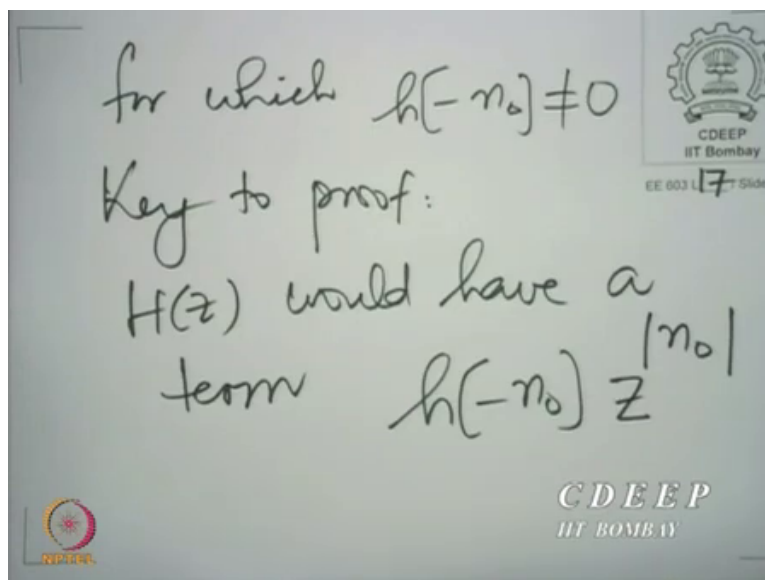 for which h[-n₀] ≠ 0
CDEEP
IIT Bombay
EE 603 L 17 Slide
Key to proof:
H(z) would have a
term h[-n₀] z^|n₀|
CDEEP
IIT BOMBAY
NPTEL